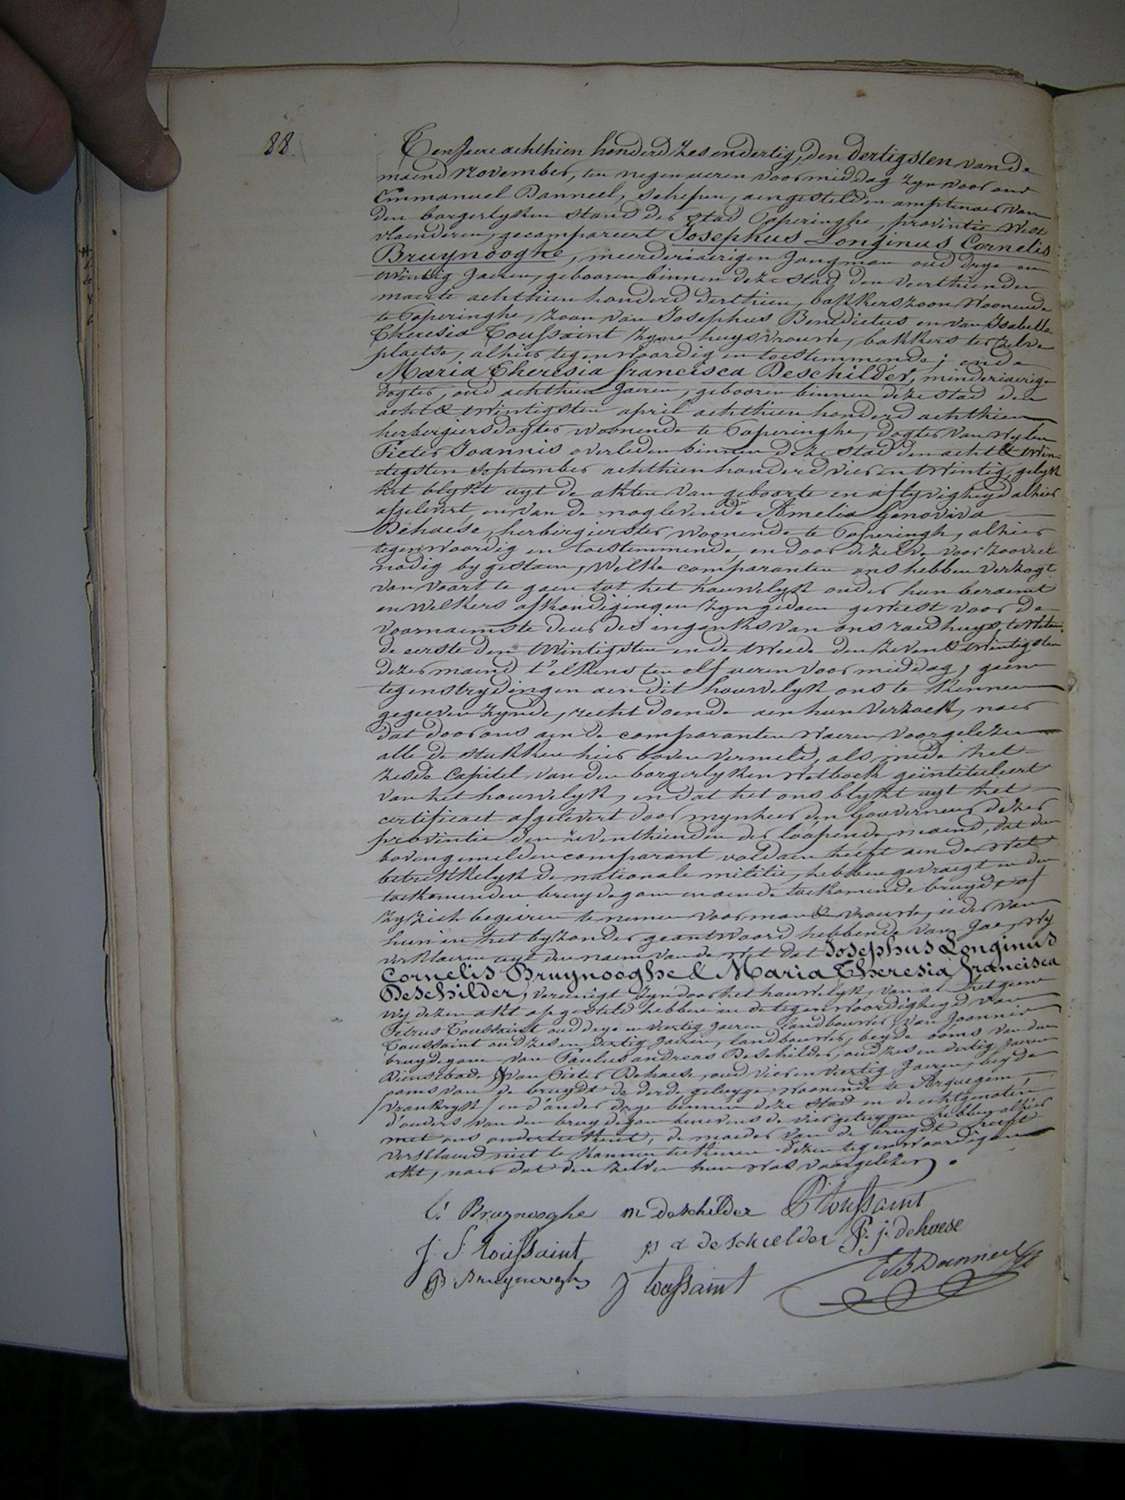 88.
Ten Jaere achthien honderd zes en dertig, den dertigsten van de
maend November, ten negen ueren voormiddag zyn voor ons
Emmanuel Danneel, schepen, aengestelden amptenaer van
den borgerlyken stand der stad Poperinghe, provintie West
vlaenderen, gecompareert Josephus Longinus Cornelis
Bruynooghe, meerderjaerigen jongman oud drye en
twintig Jaeren, gebooren binnen deze stad den veerthienden
maerte achthien honderd derthien, bakkerszoon woonende
te Poperinghe, zoon van Josephus Benedictus en van Isabella
Theresia Toussaint zyne huysvrouwe, bakkers ter zelve
plaetse, alhier tegenwoordig en toestemmende; ende
Maria Theresia francisca Deschilder, minderjaerige
dogter, oud achthien Jaeren, gebooren binnen deze stad den
acht & twintigsten april achthien honderd achthien
herbergiersdogter woonende te Poperinghe, dogter van wylen
Pieter Joannis overleden binnen deze stad den acht & twin-
tigsten September achthien honderd vier en twintig, gelyk
het blykt uyt de akten van geboorte en aflyvigheyd alhier
afgelevert, en van de naglevende Amelia Genoviva
Dehaese, herbergierster woonende te Poperingh, alhier
tegenwoordig en toestemmende, en door dezelve voor zooveel
nodig bygestaen, welke comparanten ons hebben verzogt
van voort te gaen tot het houwelyk onder hun beraemt
en welkers afkondigingen zyn gedaen geweest voor de
voornaemste deur des ingankx van ons raedhuys, te weten:
de eerste den twintigsten en de tweede den zeven & twintigsten
dezer maend t'elkens ten elf ueren voormiddag; geene
tegenstrydingen aen dit houwelyk ons te kennen
gegeeven zynde, recht doende aen hun verzoek, naer
dat door ons aen de comparanten waeren voorgelezen
alle de stukken hier boven vermeld, als mede het
zesde Capitel van den borgerlyken wetboek geïntituleert
van het houwelyk, en dat het ons blykt uyt het
certificaet afgelevert door mynheer den Gouverneur dezer
provintie den zeventhienden der loopende maend, dat den
bovengemelden comparant voldaen heeft aen de wet
betrekkelyk de nationale militie, hebben gevraegt aen den
toekomenden bruydegom en aen de toekomende bruyd of
zy zich begeiren te nemen voor man & vrouwe, ieder van
hun in het byzonder geantwoord hebbende van Jae, wy
verklaeren uyt den naem van de wet dat Josephus Longinus
Cornelis Bruynooghe & Maria Theresia francisca
Deschilder, vereenigt zyn door het houwelyk, van al het gene
wy dezen akt opgesteld hebben in de tegenwoordigheyd van
Petrus Toussaint oud drye en veertig Jaeren landbouwer, van Joannis
Toussaint oud zes en dertig Jaeren, landbouwer, beyde ooms van den
bruydegom van Paulus andreas Deschilder, oud zes en dertig Jaeren
Dienstbode & van Pieter Dehaese, oud vier en veertig Jaeren, beyde
ooms van de bruydt de derde getuyge woonende te
/vrankryk/ en d'ander drye binnen deze stad en de echtgenoten
d'ouders van den bruydegom benevens de vier getuygen hebben alhier
met ons onderteekent, de moeder van de bruydt heeft
verklaerd niet te konnen teekenen dezen tegenwoordigen
akt, naer dat den zelven hun was voorgelezen.
C: Bruynooghe m deschilder P Toussaint
J. S toussaint p a deschielder P. j. dehaese
B Bruynoogh J toussaint E B Danneel